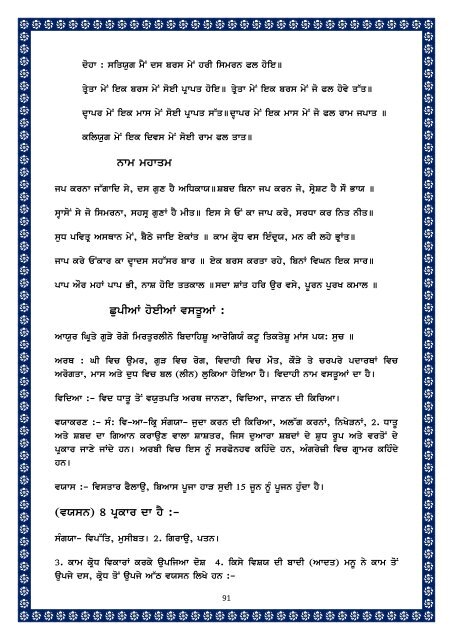 ਦੋਹਾ : ਸਤਿਯੁਗ ਮੈਂ ਦਸ ਬਰਸ ਮੇਂ ਹਰੀ ਸਿਮਰਨ ਫਲ ਹੋਇ॥
ਤ੍ਰੇਤਾ ਮੇਂ ਇਕ ਬਰਸ ਮੇਂ ਸੋਈ ਪ੍ਰਾਪਤ ਹੋਇ॥ ਤ੍ਰੇਤਾ ਮੇਂ ਇਕ ਬਰਸ ਮੇਂ ਜੋ ਫਲ ਹੋਵੇ ਤੱਤ॥
ਦ੍ਵਾਪਰ ਮੇਂ ਇਕ ਮਾਸ ਮੇਂ ਸੋਈ ਪ੍ਰਾਪਤ ਸੱਤ॥ਦ੍ਵਾਪਰ ਮੇਂ ਇਕ ਮਾਸ ਮੇਂ ਜੋ ਫਲ ਰਾਮ ਜਪਾਤ ॥
ਕਲਿਯੁਗ ਮੇਂ ਇਕ ਦਿਵਸ ਮੇਂ ਸੋਈ ਰਾਮ ਫਲ ਤਾਤ॥
ਨਾਮ ਮਹਾਤਮ
ਜਪ ਕਰਨਾ ਜੱਗਾਦਿ ਸੇ, ਦਸ ਗੁਣ ਹੈ ਅਧਿਕਾਯ॥ਸ਼ਬਦ ਬਿਨਾ ਜਪ ਕਰਨ ਜੋ, ਸ੍ਰੇਸ਼ਟ ਹੈ ਸੌ ਭਾਯ ॥
ਸ੍ਵਾਸੋਂ ਸੇ ਜੋ ਸਿਮਰਨਾ, ਸਹਸ੍ਰ ਗੁਣਾਂ ਹੈ ਮੀਤ॥ ਇਸ ਸੇ ਓਂ ਕਾ ਜਾਪ ਕਰੋ, ਸਰਧਾ ਕਰ ਨਿਤ ਨੀਤ॥
ਸੁਧ ਪਵਿਤ੍ਰ ਅਸਥਾਨ ਮੇਂ, ਬੈਠੇ ਜਾਇ ਏਕਾਂਤ ॥ ਕਾਮ ਕ੍ਰੋਧ ਵਸ ਇੰਦ੍ਰਯ, ਮਨ ਕੀ ਲਹੇ ਭ੍ਰਾਂਤ॥
ਜਾਪ ਕਰੇ ਓਂਕਾਰ ਕਾ ਦ੍ਵਾਦਸ ਸਹੱਸਰ ਬਾਰ ॥ ਏਕ ਬਰਸ ਕਰਤਾ ਰਹੇ, ਬਿਨਾਂ ਵਿਘਨ ਇਕ ਸਾਰ॥
ਪਾਪ ਔਰ ਮਹਾਂ ਪਾਪ ਭੀ, ਨਾਸ਼ ਹੋਇ ਤਤਕਾਲ ॥ਸਦਾ ਸ਼ਾਂਤ ਹਰਿ ਉਰ ਵਸੇ, ਪੂਰਨ ਪੁਰਖ ਕਮਾਲ ॥
ਛੁਪੀਆਂ ਹੋਈਆਂ ਵਸਤੂਆਂ :
ਆਯੁਰ ਘ੍ਰਿਤੇ ਗੁੜੇ ਰੋਗੇ ਮਿਰਤੁਰਲੀਨੋ ਬਿਦਾਹਿਸ਼ੂ ਆਰੋਗਿਯੰ ਕਟੂ ਤਿਕਤੇਸ਼ੂ ਮਾਂਸ ਪਯ: ਸੁਚ ॥
ਅਰਥ : ਘੀ ਵਿਚ ਉਮਰ, ਗੁੜ ਵਿਚ ਰੋਗ, ਵਿਦਾਹੀ ਵਿਚ ਮੌਤ, ਕੌੜੇ ਤੇ ਚਰਪਰੇ ਪਦਾਰਥਾਂ ਵਿਚ
ਅਰੋਗਤਾ, ਮਾਸ ਅਤੇ ਦੁਧ ਵਿਚ ਬਲ (ਲੀਨ) ਲੁਕਿਆ ਹੋਇਆ ਹੈ। ਵਿਦਾਹੀ ਨਾਮ ਵਸਤੂਆਂ ਦਾ ਹੈ।
ਵਿਦਿਆ :- ਵਿਦ ਧਾਤੂ ਤੋਂ ਵਯੁਤਪਤਿ ਅਰਥ ਜਾਨਣਾ, ਵਿਦਿਆ, ਜਾਣਨ ਦੀ ਕਿਰਿਆ।
ਵਯਾਕਰਣ :- ਸੰ: ਵਿ-ਆ-ਕ੍ਰਿ ਸੰਗਯਾ- ਜੁਦਾ ਕਰਨ ਦੀ ਕਿਰਿਆ, ਅਲੱਗ ਕਰਨਾਂ, ਨਿਖੇੜਨਾਂ, 2. ਧਾਤੂ
ਅਤੇ ਸ਼ਬਦ ਦਾ ਗਿਆਨ ਕਰਾਉਣ ਵਾਲਾ ਸ਼ਾਸ਼ਤਰ, ਜਿਸ ਦੁਆਰਾ ਸ਼ਬਦਾਂ ਦੇ ਸ਼ੁਧ ਰੂਪ ਅਤੇ ਵਰਤੋਂ ਦੇ
ਪ੍ਰਕਾਰ ਜਾਣੇ ਜਾਂਦੇ ਹਨ। ਅਰਬੀ ਵਿਚ ਇਸ ਨੂੰ ਸਰਫੋਨਹਵ ਕਹਿੰਦੇ ਹਨ, ਅੰਗਰੇਜ਼ੀ ਵਿਚ ਗ੍ਰਾਮਰ ਕਹਿੰਦੇ
ਹਨ।
ਵਯਾਸ :- ਵਿਸਤਾਰ ਫੈਲਾਉ, ਬਿਆਸ ਪੂਜਾ ਹਾੜ ਸੁਦੀ 15 ਜੂਨ ਨੂੰ ਪੂਜਨ ਹੁੰਦਾ ਹੈ।
(ਵਯਸਨ) 8 ਪ੍ਰਕਾਰ ਦਾ ਹੈ :-
ਸੰਗਯਾ- ਵਿਪੱਤਿ, ਮੁਸੀਬਤ। 2. ਗਿਰਾਉ, ਪਤਨ।
3. ਕਾਮ ਕ੍ਰੋਧ ਵਿਕਾਰਾਂ ਕਰਕੇ ਉਪਜਿਆ ਦੋਸ਼ 4. ਕਿਸੇ ਵਿਸ਼ਯ ਦੀ ਬਾਦੀ (ਆਦਤ) ਮਨੂ ਨੇ ਕਾਮ ਤੋਂ
ਉਪਜੇ ਦਸ, ਕ੍ਰੋਧ ਤੋਂ ਉਪਜੇ ਅੱਠ ਵਯਸਨ ਲਿਖੇ ਹਨ :-
91